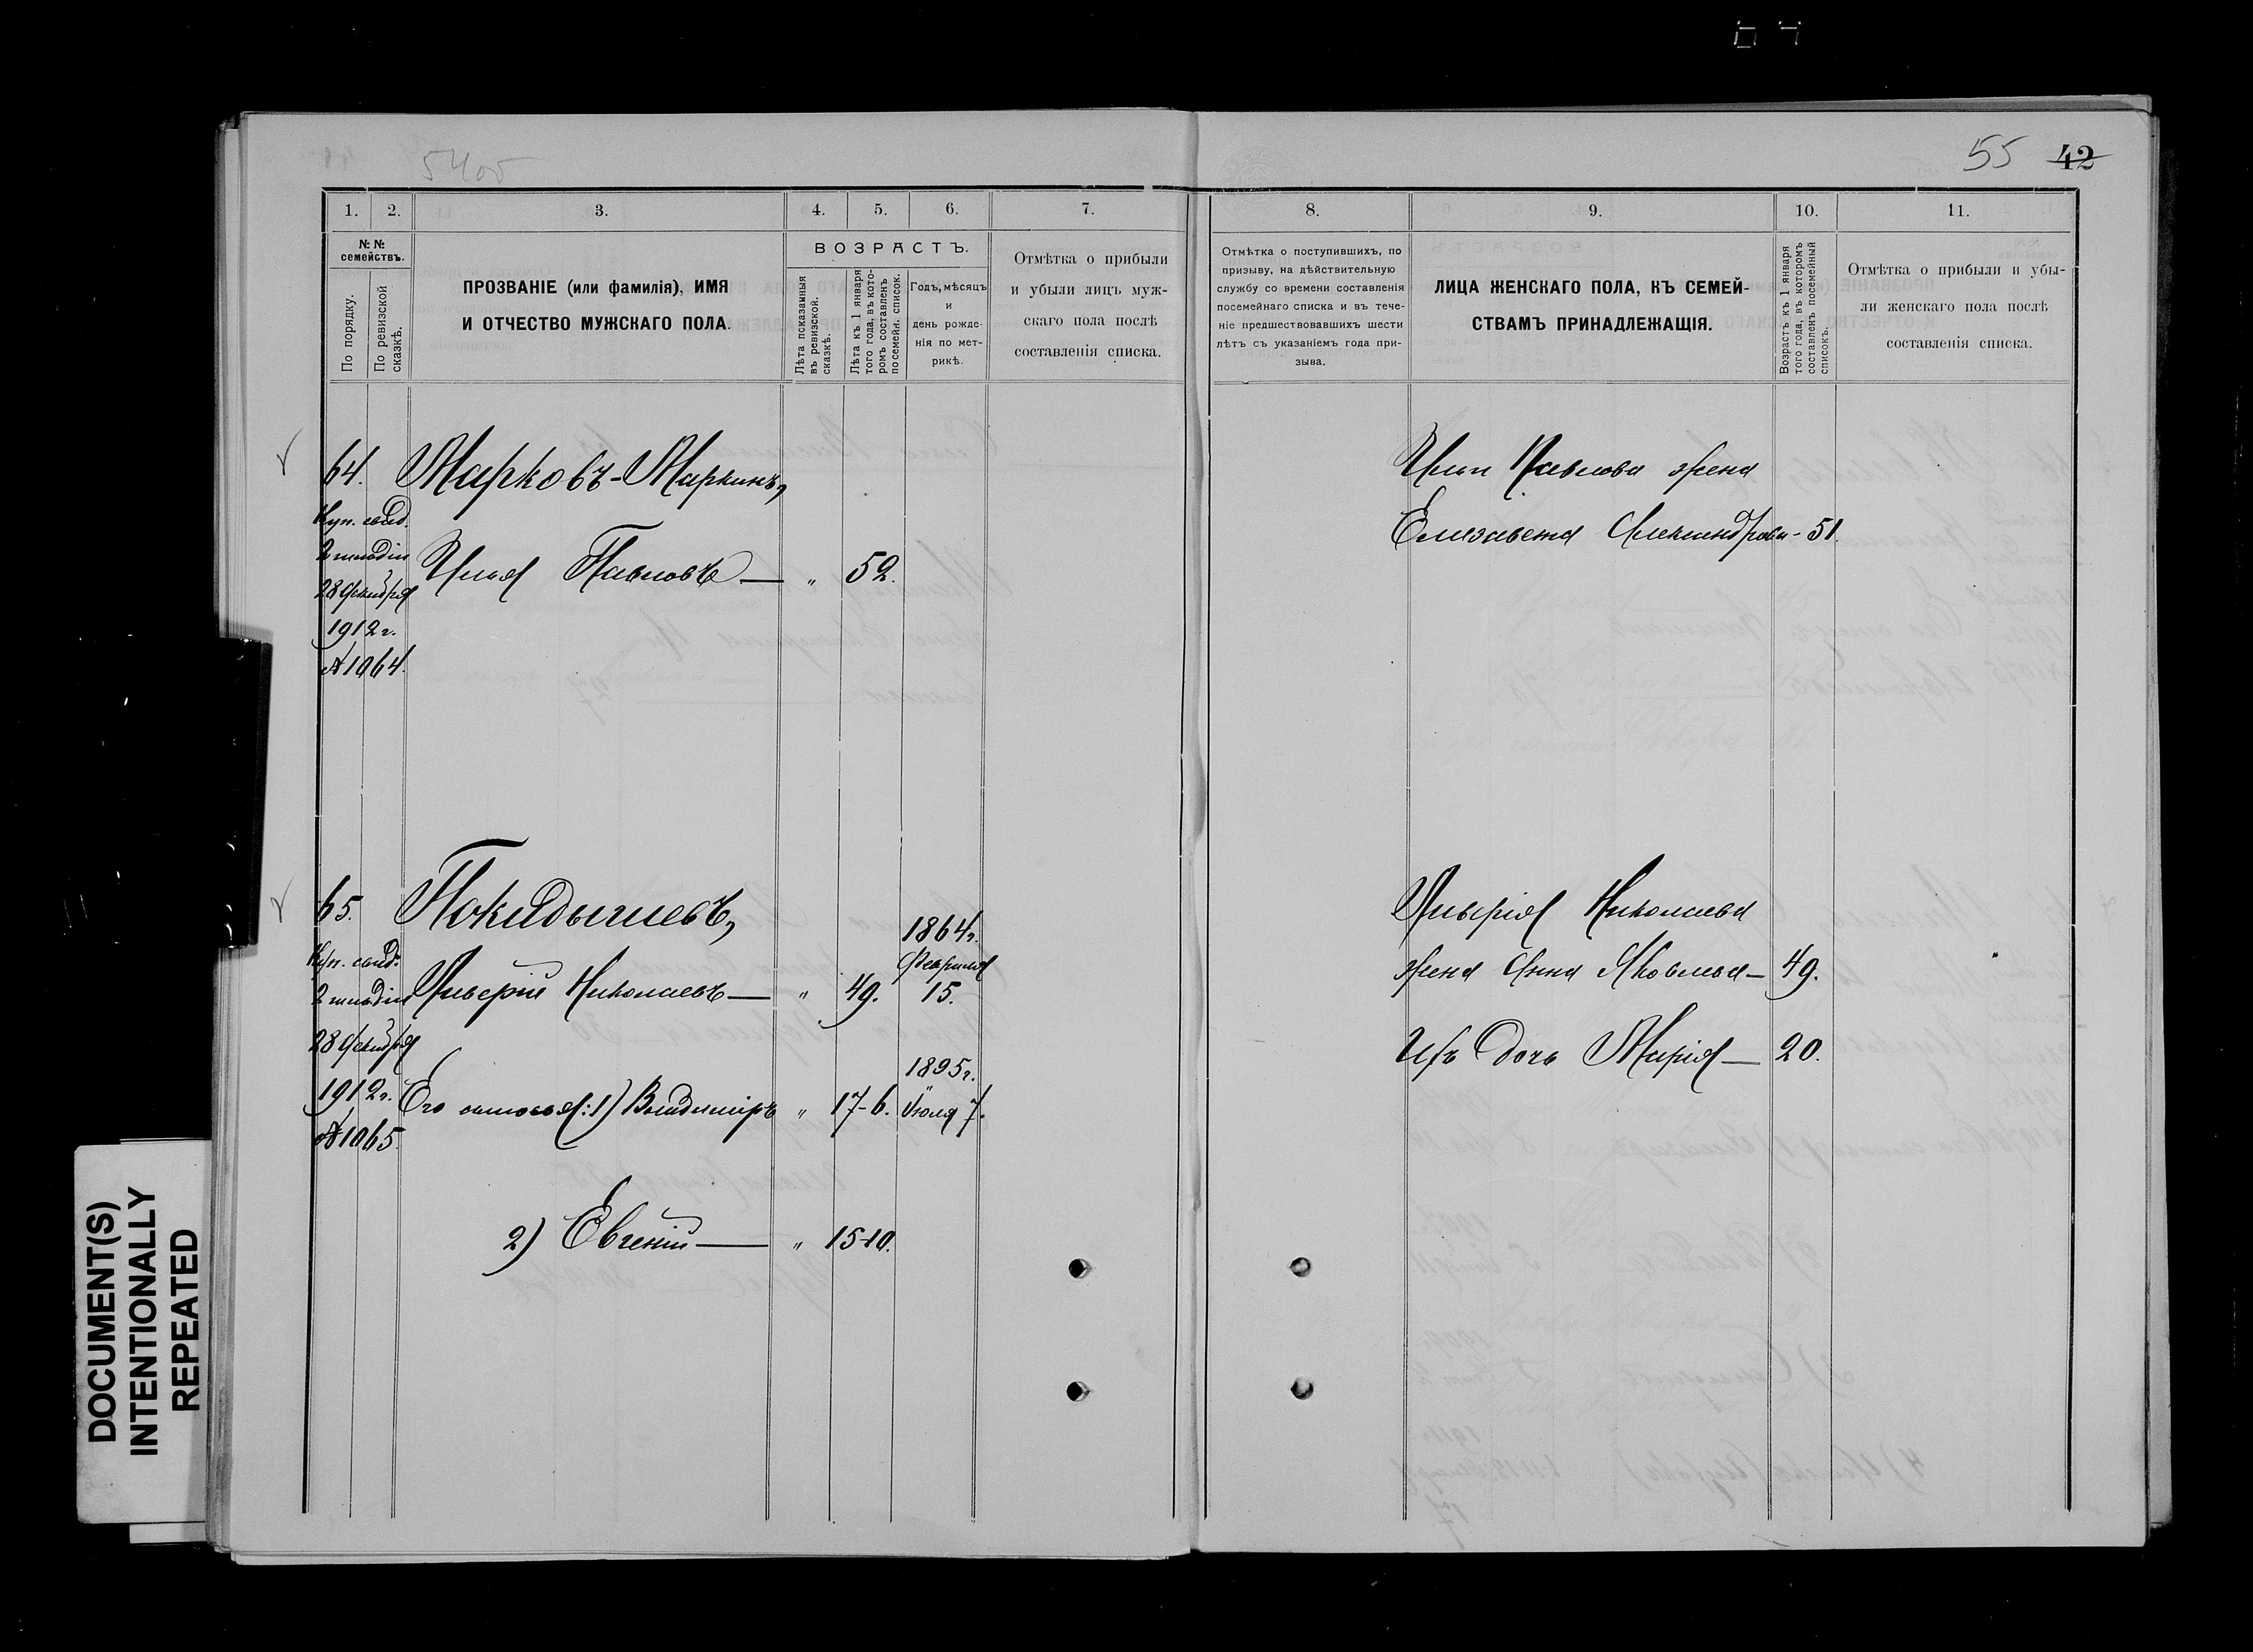 5400
55 42
1. 2. 3. 4. 5. 6. 7.
№ №
семействъ.
По порядку.
По ревизской
сказкѣ.
ПРОЗВАНІЕ (или фамилія), ИМЯ
И ОТЧЕСТВО МУЖСКАГО ПОЛА.
ВОЗРАСТЪ.
Лѣта показанныя
въ ревизской.
сказкѣ.
Лѣта къ 1 января
того года, въ кото-
ромъ составленъ
посемейн. список.
Годъ, мѣсяцъ
и
день рожде-
нія по мет-
рикѣ.
Отмѣтка о прибыли
и убыли лицъ муж-
скаго пола послѣ
составленія списка.
64. Марковъ-Маркинъ,
Куп. свид.
2 гильдіи
Илья Павловъ — „ 52.
28 Декабря
1912 г.
№ 1064.
65. Покидышевъ,
Куп. свид.
2 гильдіи
Ливерій Николаевъ — „ 49.
1864 г.
Февраля
15.
28 Декабря
1912 г.
№ 1065.
Его сыновья: 1) Владиміръ „ 17-6.
1895 г.
Іюля 7.
2) Евгеній — „ 15-10.
8. 9. 10. 11.
Отмѣтка о поступившихъ, по
призыву, на дѣйствительную
службу со времени составленія
посемейнаго списка и въ тече-
ніе предшествовавшихъ шести
лѣтъ съ указаніемъ года при-
зыва.
ЛИЦА ЖЕНСКАГО ПОЛА, КЪ СЕМЕЙ-
СТВАМЪ ПРИНАДЛЕЖАЩІЯ.
Возрастъ къ 1 января
того года, въ которомъ
составленъ посемейный
списокъ.
Отмѣтка о прибыли и убы-
ли женскаго пола послѣ
составленія списка.
Ильи Павлова жена
Елизавета Александрова - 51.
Ливерія Николаева
жена Анна Яковлева — 49.
Ихъ дочь Марія — 20.
DOCUMENT(S)
INTENTIONALLY
REPEATED